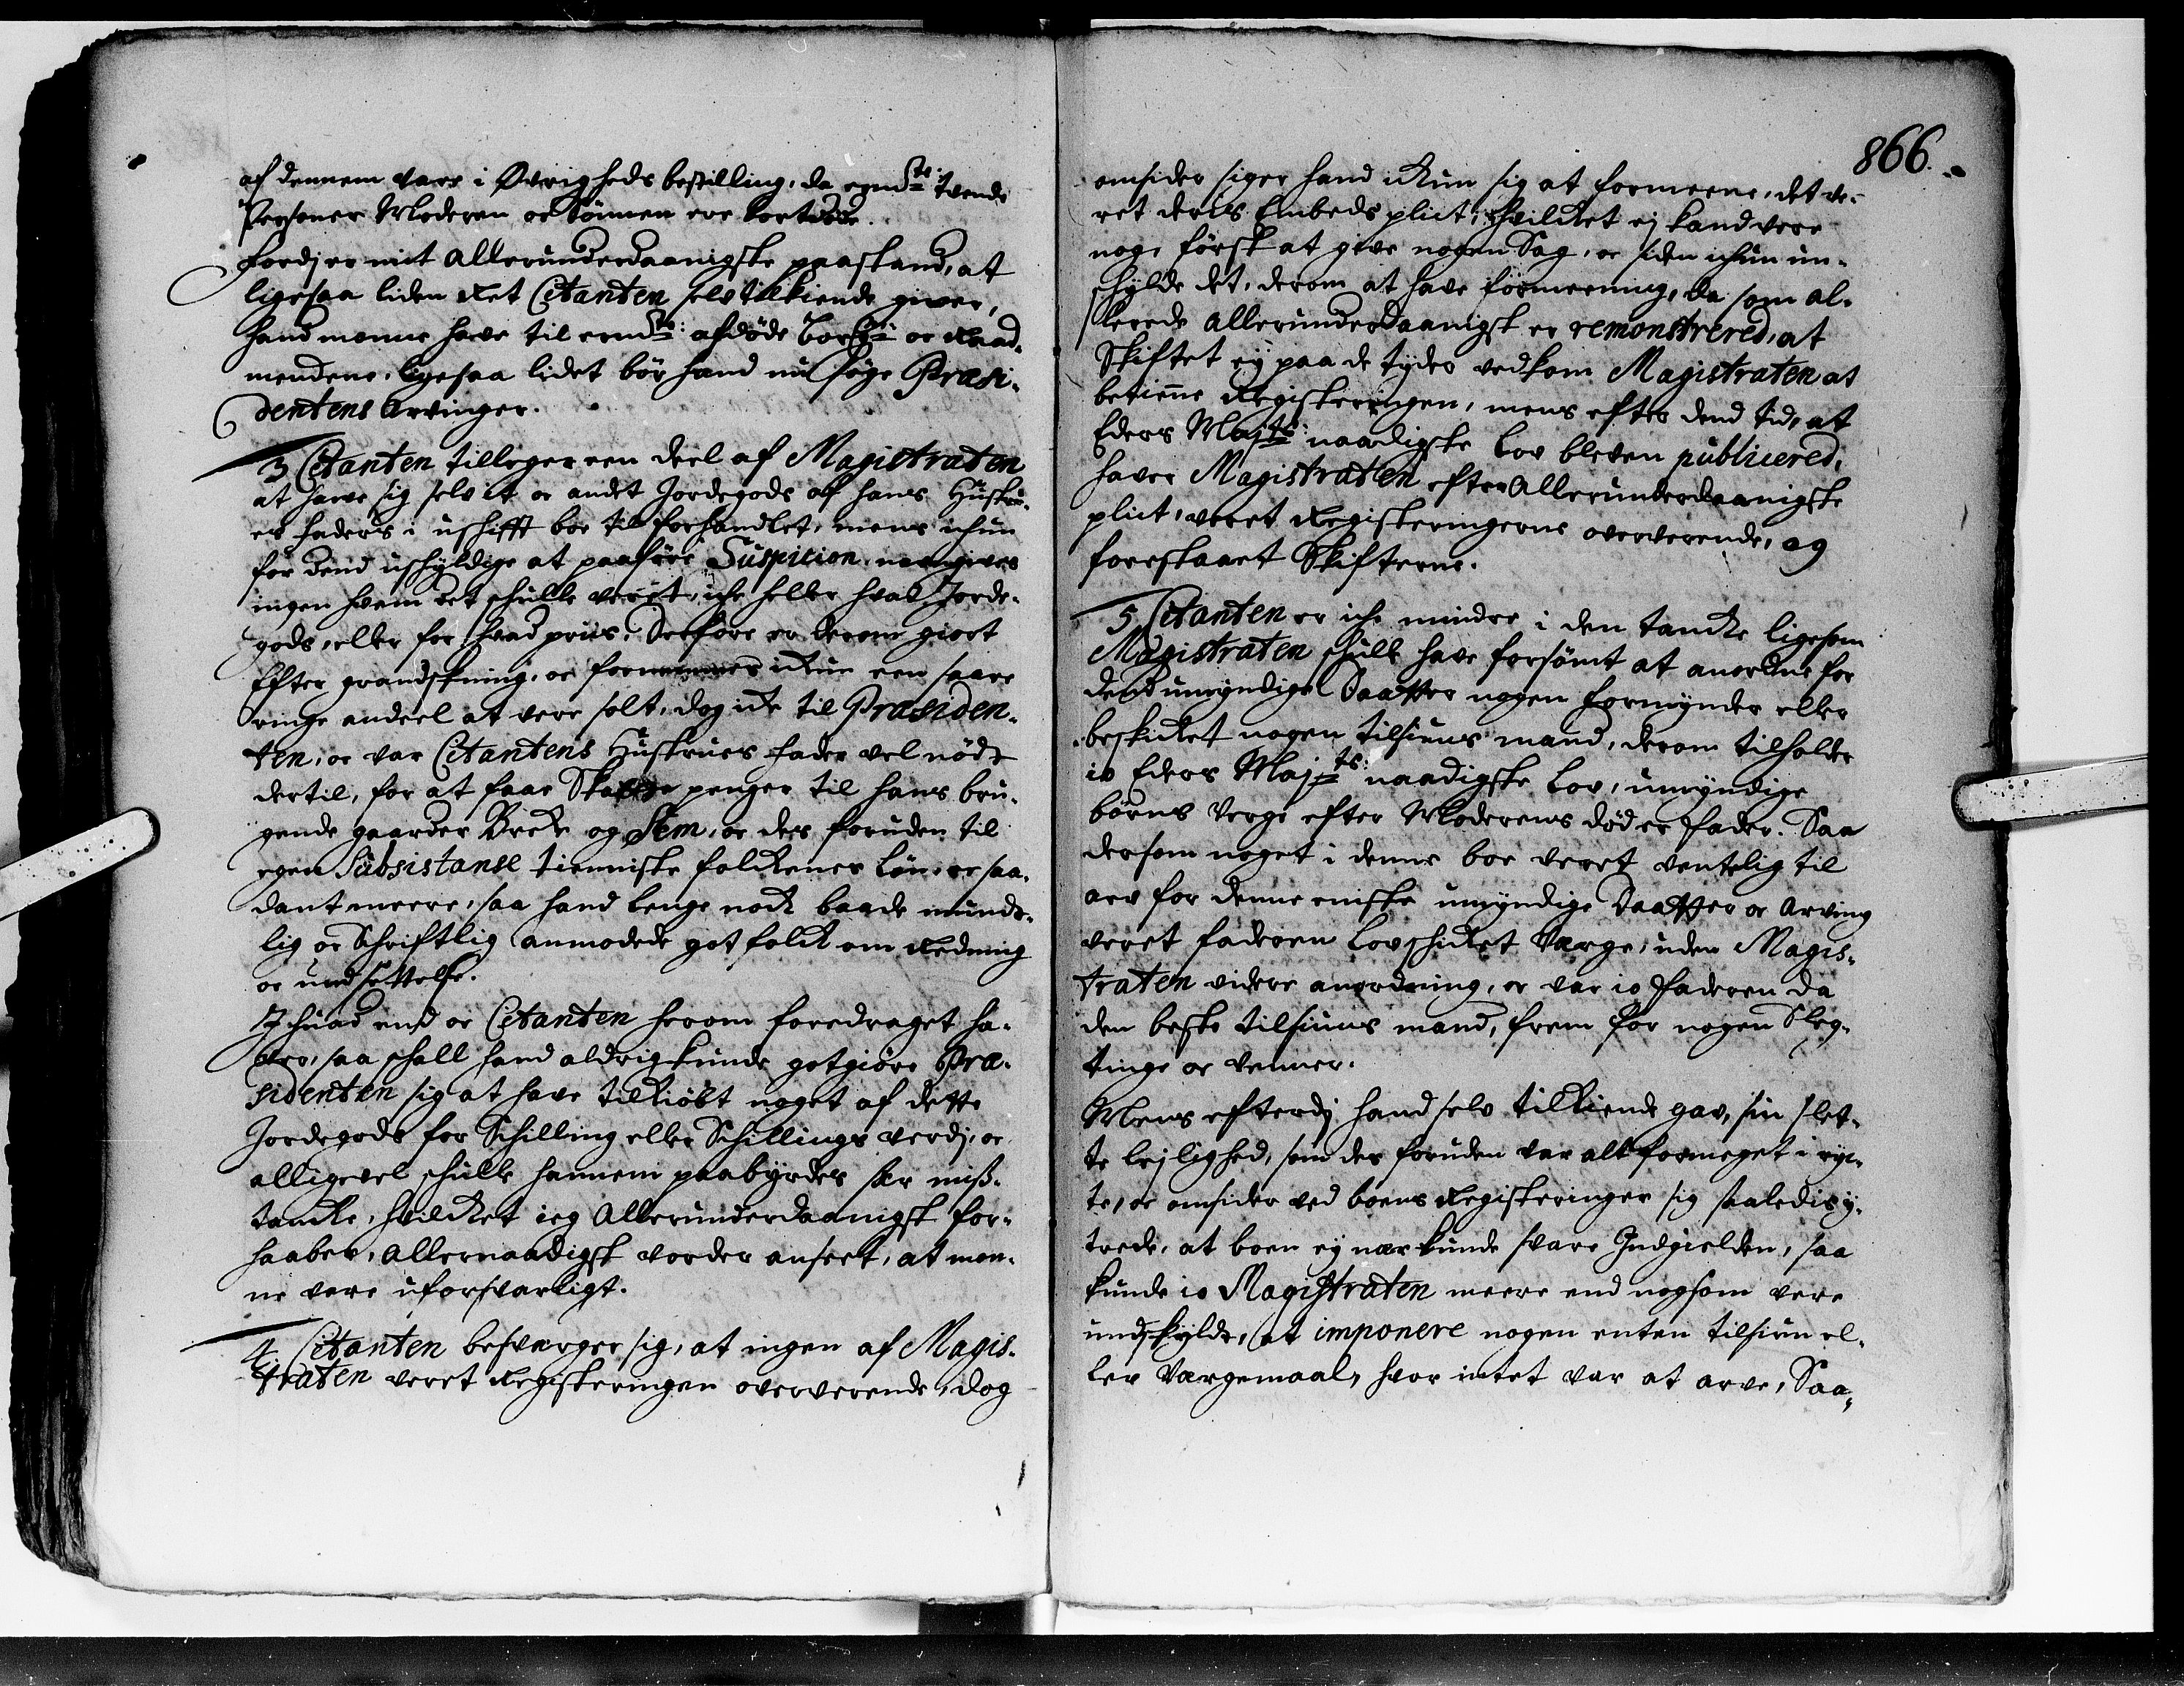 af dennem vare i Øvrigheds bestilling, da ermdte: tvende
Personer Moderen oc Sönnen ere bortdöde.
fordj er mit Allerunderdaanigste paastand, at
ligesaa liden Ret Citanten selv tilkiende giver,
hand monne have til ermdte: afdöde Borg: oc Raad-
mendene, ligesaa lidet bör hand nu söge Præsi-
dentens Arvinger.
3 Citanten tilleger een deel af Magistraten
at have sig selv it oc andet Jordegods af hans Hustru-
es Faders i uskifft boe tilforhandlet, mens ichun
for dend uskyldige at paaföre Suspicion, naangives
ingen hvem det skulle veret, iche heller hvad Jorde-
gods, eller for hvad priis. Derfore er derom giort
Efter grandskning, oc fornemmes ickun een saare
ringe andeel at vere solt, dog icke til Præsiden-
ten, oc var Citantens Hustrues Fader vel nödt
dertil, for at faae Skatte penger til hans bru-
gende gaarder Brecke og Sem, oc des foruden til
egen Subsistance tienniste folckenes Lön, oc saa-
dant meere, saa hand lenge nock baade mundt-
lig oc Skriftlig anmodede got folck om Redning
oc undsettelse.
I hvad end oc Citanten herom foredraget ha-
ver, saa skall hand aldrig kunde gotgiöre Præ-
sidenten sig at have tilkiöbt noget af dette
Jordegods for Schilling eller Schillings verdj, oc
alligevel skulle hannem paabyrdes slær miss-
tancke, hvilcket ieg Allerunderdaanigst for-
haaber, Allernaadigst vorder anseet, at mon-
ne vere uforsvarligt.
4 Citanten besværger sig, at ingen af Magis-
traten veret Registeringen oververende, dog
866.
omsider siger hand ickun sig at formeene, det ve-
ret deris Embeds plict, Hvilcket ej kand vere
nog, först at give nogen Sag, oc siden ichun un-
skylde det, derom at have formeening, da som al-
lerede Allerunderdaanigst er remonstrered, at
Skiftet ey paa de tyder vedkom Magistraten at
betienne Registeringen, mens efter dend tid, at
Eders Majts: naadigste Lov bleven publicered,
haver Magistraten efter Allerunderdaanigste
plict, veret Registeringerne oververende, og
forestaaet Skifterne.
5 Citanten er iche mindre i den tancke ligesom
Magistraten skulle have forsömt at anordne for
dend umyndige Daatter nogen Formynder eller
beskicket nogen tilsiuns mand, derom tilholder
io Eders Majts: naadigste Lov, umyndige
börns Verge efter Moderens död er Fader. Saa
dersom noget i denne boe veret ventelig til
arv for denne eniste umyndige Daatter oc Arving
veret Faderen Lovskicket Værge, uden Magis-
traten videre anordning, oc var io Faderen da
den beste tilsiuns mand, frem for nogen Sleg-
tinge oc Venner.
Mens efterdj hand selv tilkiende gav, sin slet-
te lejlighed, som des foruden var alt formeget i ryc-
te, oc omsider ved boens Registeringer sig saaledis y-
trede, at boen ey nær kunde svare Indgielden, saa
kunde io Magistraten meere end nogsom vere
undskyldt, at imponere nogen enten tilsiun el-
ler Værgemaal, hvor intet var at arve, Saa,